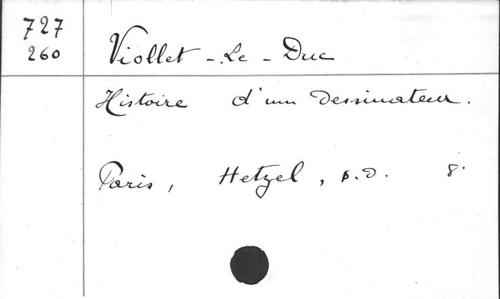 727
260
Viollet-Le-Duc
Histoire d'un Dessinateur.
Paris, Hetzel, s.d. 8.